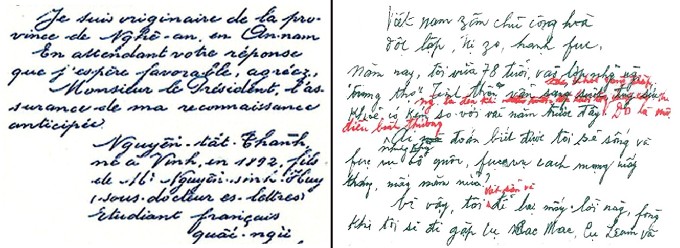 Je suis originaire de la pro-
vince de Nghê-an, en Annam
En attendant votre réponse
que j'espère favorable, agréez,
Monsieur le Président, l'as-
surance de ma reconnaissance
anticipée
Nguyễn-tất-Thành
né à Vinh, en 1892, fils
de Mr Nguyễn-sinh-Huy
(sous-docteur ès-lettres)
Etudiant français
quốc-ngữ,
Việt nam zân chủ cộng hoà
độc lập, tự zo, hạnh fúc.
Năm nay, tôi vừa 78 tuổi, vào lớp những
trung thọ. Tinh thần
khoẻ có kém so với vài năm trước đây. Đó là
điều bình thường
đoán biết được tôi sẽ sống và
fục vụ tổ quốc, fục vụ cách mạng mấy
tháng, mấy năm nữa
Vì vậy, tôi để lại mấy lời này, fòng
khi tôi sẽ đi gặp cụ Các Mác, cụ Lênin và